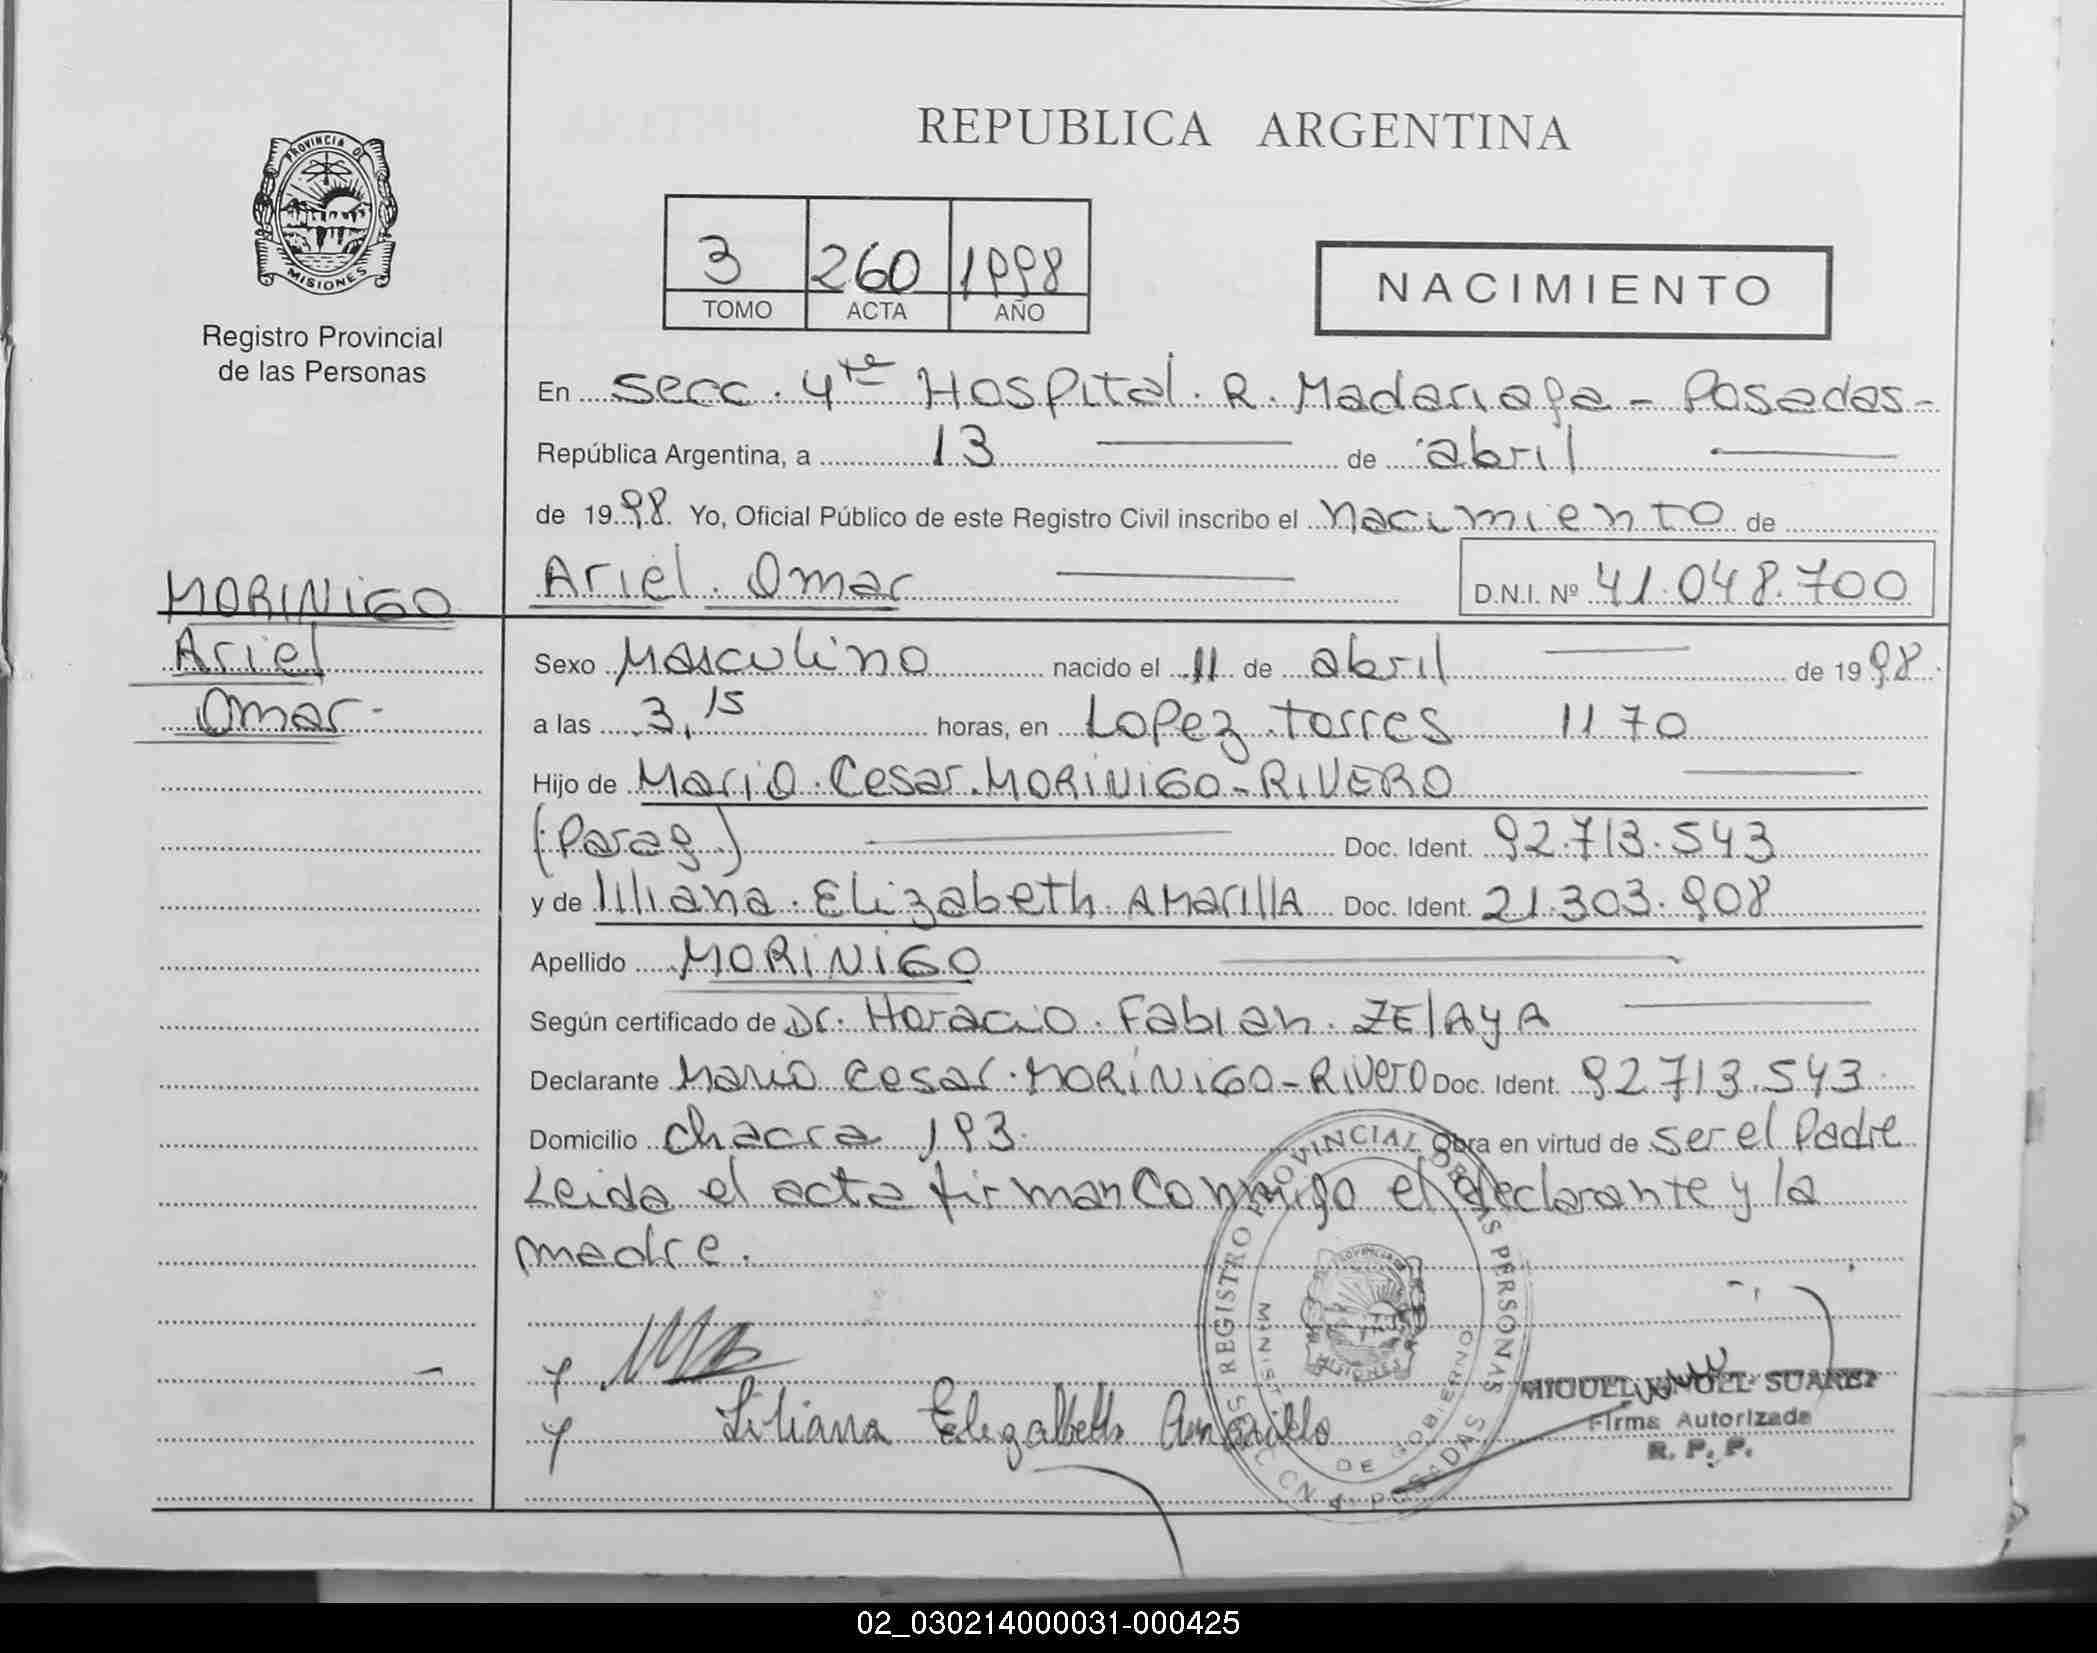 REPUBLICA ARGENTINA
PROVINCIA DE
MISIONES
Registro Provincial
de las Personas
3 260 1998
TOMO ACTA AÑO
NACIMIENTO
En secc. 4ta Hospital. R. Madariaga - Posadas -
República Argentina, a 13 de abril
de 1998. Yo, Oficial Público de este Registro Civil inscribo el nacimiento de
Ariel. Omar D.N.I. Nº 41.048.700
MORINIGO
Ariel
Omar-
Sexo Masculino nacido el 11 de abril de 1998.
a las 3,15 horas, en Lopez torres 1170
Hijo de Mario. Cesar. MORINIGO - RIVERO
(Parag.) Doc. Ident. 92.713.543
y de liliana. Elizabeth. AMArillA Doc. Ident. 21.303.908
Apellido MORINIGO
Según certificado de Dr. Horacio. Fabian. ZElAyA
Declarante Mario Cesar. MORINIGO - Rivero Doc. Ident. 92.713.543
Domicilio chacra 193. Obra en virtud de ser el Padre
Leida el acta firman conmigo el declarante y la
madre.
REGISTRO PROVINCIAL DE LAS PERSONAS
MISIONES
DE GOBIERNO
POSADAS
Liliana Elizabeth Amarilla
SUAREZ
Firma Autorizada
R. P. P.
02_030214000031-000425